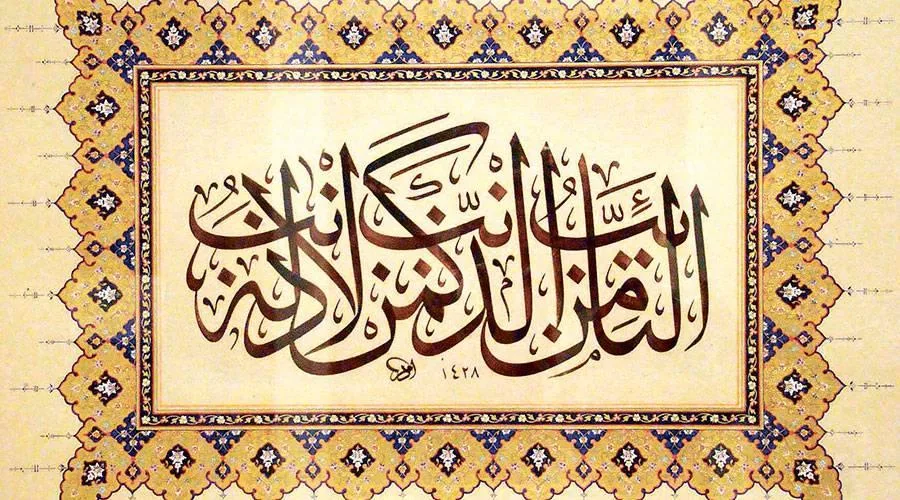 التائب من الذنب كمن لا ذنب له
١٤٢٨